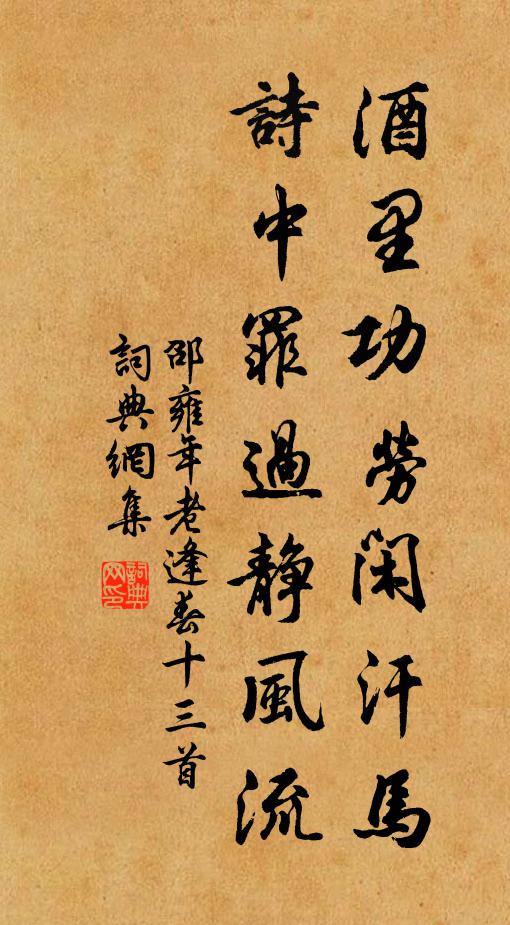 酒里功勞閑汗馬
詩中罪過静風流
邵雍年老逢春十三首
詞典網集
詞典網印